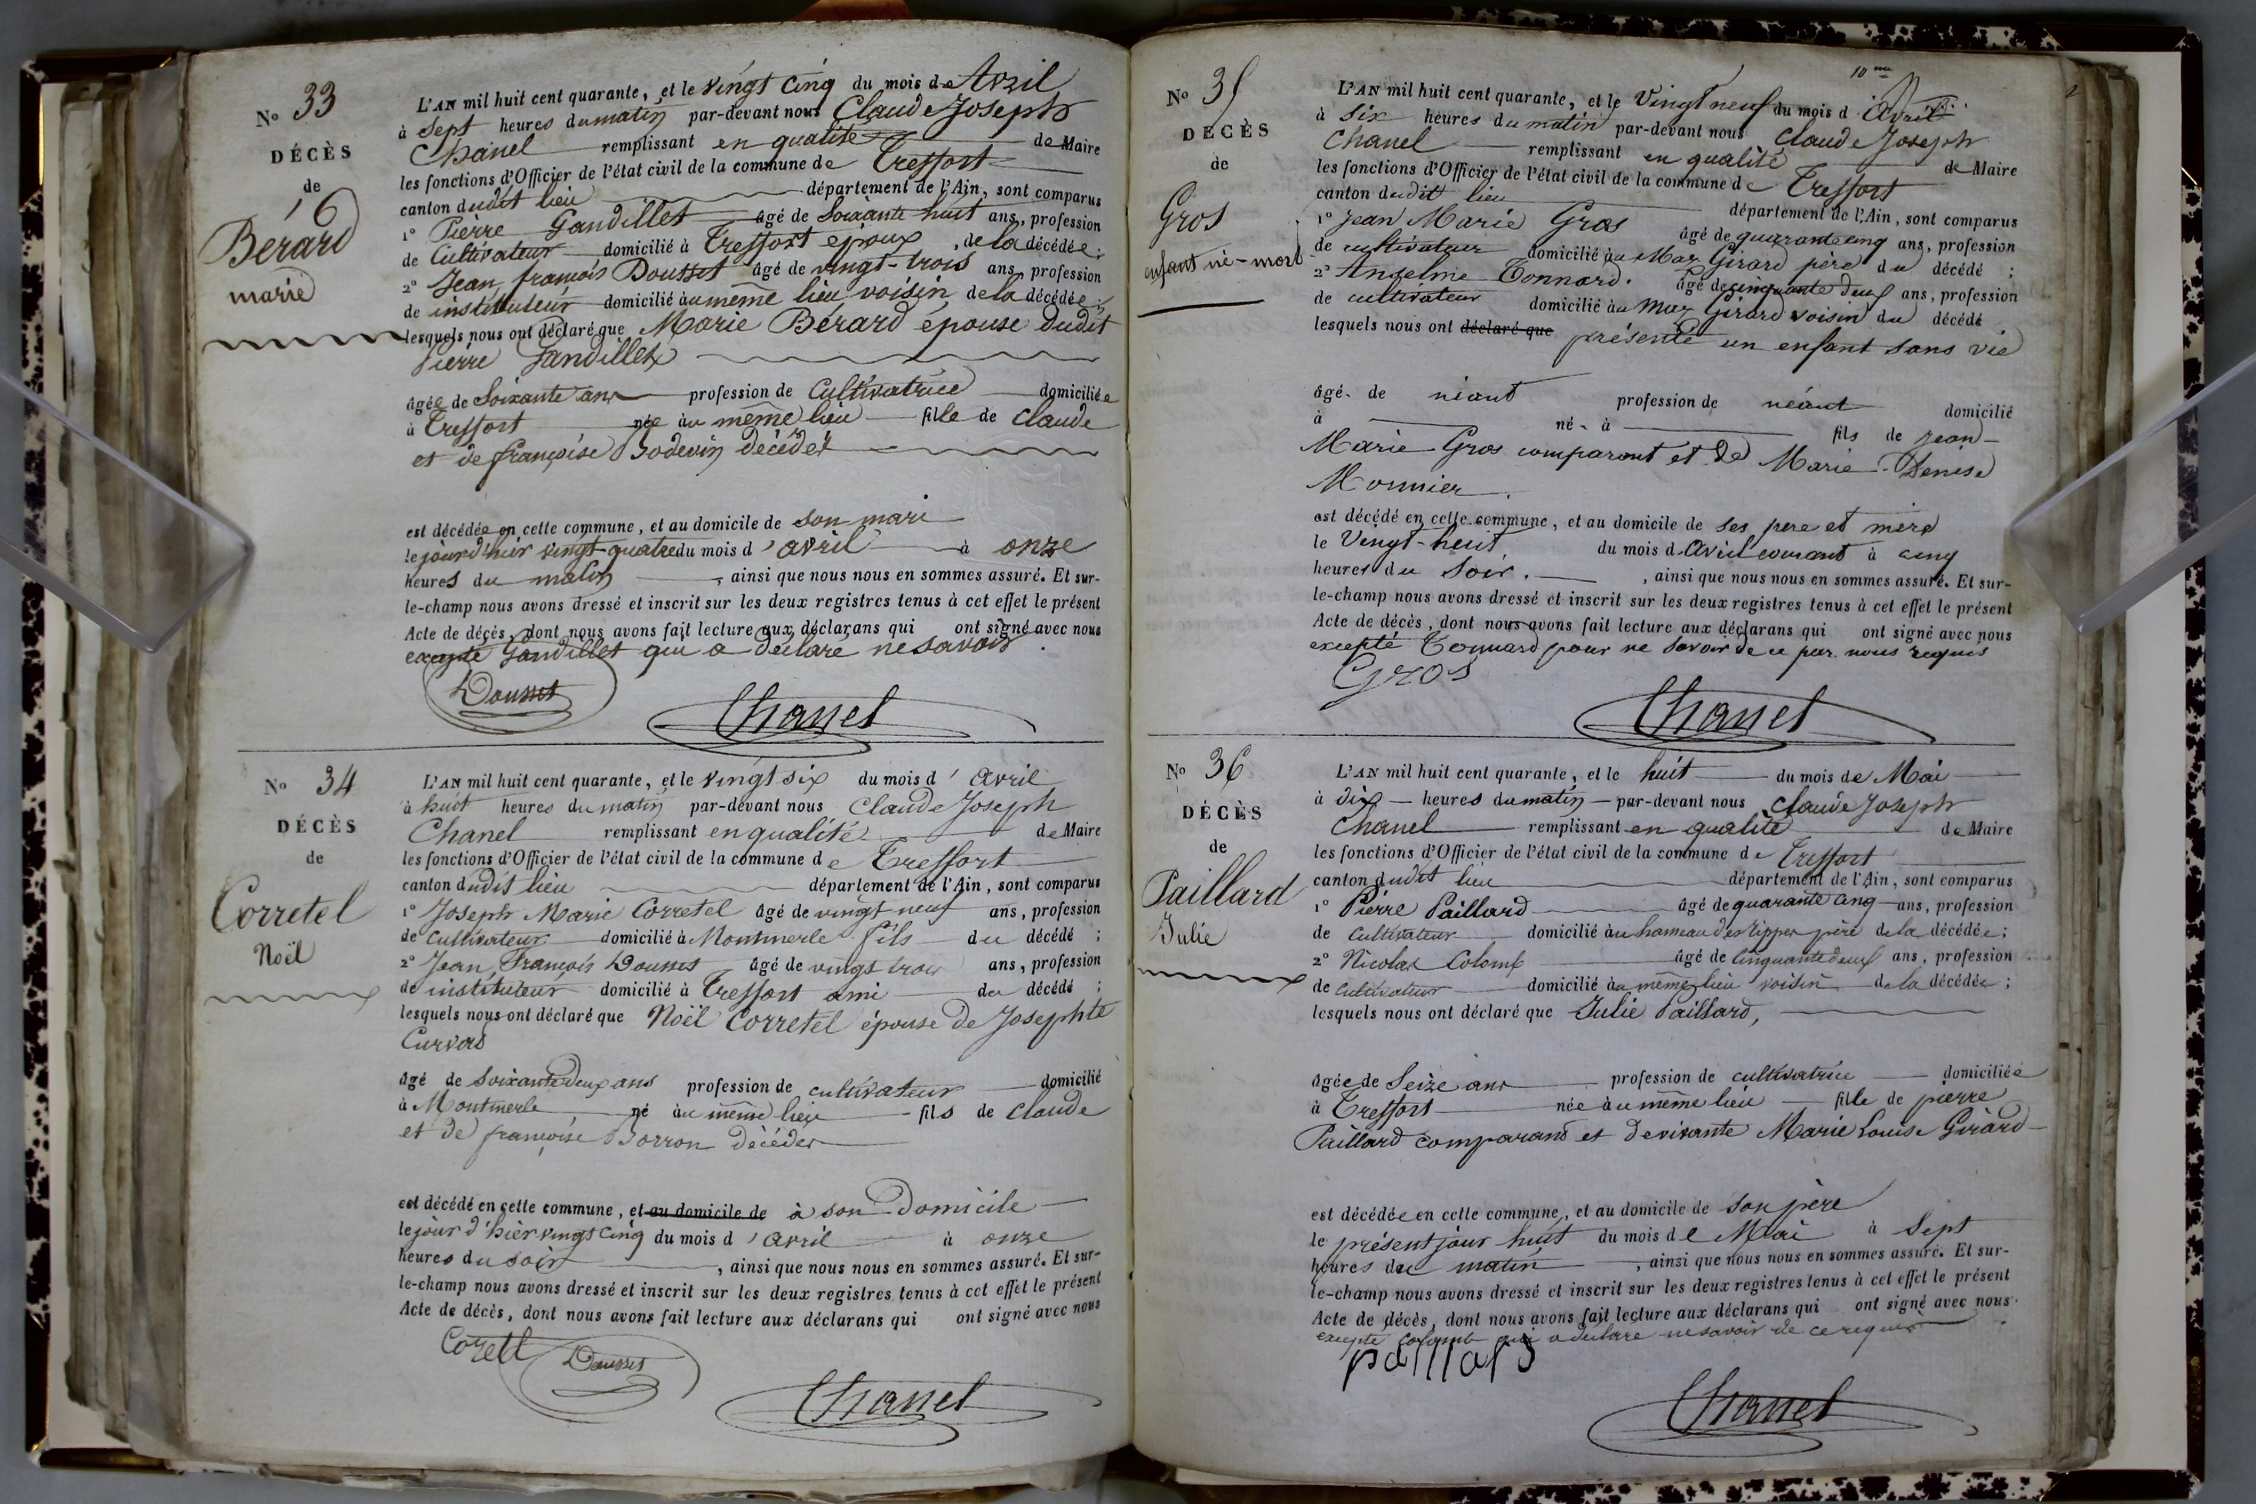 No 33
DÉCÈS
de
16
Berard
marie
L'AN mil huit cent quarante, et le vingt cinq du mois de Avril
à Sept heures du matin par-devant nous Claude Joseph
Chanel remplissant en qualité de Maire
les fonctions d'Officier de l'état civil de la commune de Treffort
canton dudit lieu département de l'Ain, sont comparus
1° Pierre Gandillet âgé de Soixante huit ans, profession
de Cultivateur domicilié à Treffort époux, de la décédée;
2° Jean françois Dousset âgé de vingt-trois ans, profession
de instituteur domicilié au même lieu voisin de la décédée;
lesquels nous ont déclaré que Marie Berard épouse dudit
Pierre Gandillet
âgée de Soixante ans profession de Cultivatrice domiciliée
à Treffort née au même lieu fille de Claude
et de françoise Godevin décédés
est décédée en cette commune, et au domicile de son mari
le jour d'hier vingt-quatre du mois d'avril à onze
heures du matin, ainsi que nous nous en sommes assuré. Et sur-
le-champ nous avons dressé et inscrit sur les deux registres tenus à cet effet le présent
Acte de décès, dont nous avons fait lecture aux déclarans qui ont signé avec nous
excepté Gandillet qui a déclaré ne savoir.
Dousset
Chanel
No 34
DÉCÈS
de
Corretel
Noël
L'AN mil huit cent quarante, et le vingt six du mois d'avril
à huit heures du matin par-devant nous Claude Joseph
Chanel remplissant en qualité de Maire
les fonctions d'Officier de l'état civil de la commune de Treffort
canton dudit lieu département de l'Ain, sont comparus
1° Joseph Marie Corretel âgé de vingt neuf ans, profession
de Cultivateur domicilié à Montmerle fils du décédé;
2° Jean François Dousset âgé de vingt trois ans, profession
de instituteur domicilié à Treffort ami du décédé;
lesquels nous ont déclaré que Noël Corretel épouse de Josephte
Curvas
âgé de Soixante deux ans profession de cultivateur domicilié
à Montmerle né au même lieu fils de Claude
et de françoise Borron décédés
est décédé en cette commune, et au domicile de à son Domicile
le jour d'hier vingt cinq du mois d'avril à onze
heures du soir, ainsi que nous nous en sommes assuré. Et sur-
le-champ nous avons dressé et inscrit sur les deux registres tenus à cet effet le présent
Acte de décès, dont nous avons fait lecture aux déclarans qui ont signé avec nous
Coretl
Dousset
Chanel
10me
No 35
DÉCÈS
de
Gros
enfant né-mort
L'AN mil huit cent quarante, et le Vingt neuf du mois d'avril
à six heures du matin par-devant nous Claude Joseph
Chanel remplissant en qualité de Maire
les fonctions d'Officier de l'état civil de la commune de Treffort
canton dudit lieu département de l'Ain, sont comparus
1° Jean Marie Gros âgé de quarante cinq ans, profession
de cultivateur domicilié au Mas Girard père du décédé;
2° Anselme Tonnard. âgé de cinquante deux ans, profession
de cultivateur domicilié au Mas Girard voisin du décédé
lesquels nous ont déclaré que présenté un enfant sans vie
âgé de néant profession de néant domicilié
à né à fils de Jean
Marie Gros comparant et de Marie Denise
Monnier.
est décédé en cette commune, et au domicile de ses pere et mère
le Vingt-huit, du mois d'avril courant à cinq
heures du soir., ainsi que nous nous en sommes assuré. Et sur-
le-champ nous avons dressé et inscrit sur les deux registres tenus à cet effet le présent
Acte de décès, dont nous avons fait lecture aux déclarans qui ont signé avec nous
excepté Tonnard pour ne savoir de ce par nous requis
Gros
Chanel
No 36
DÉCÈS
de
Paillard
Julie
L'AN mil huit cent quarante, et le huit du mois de Mai
à dix heures du matin par-devant nous Claude Joseph
Chanel remplissant en qualité de Maire
les fonctions d'Officier de l'état civil de la commune de Treffort
canton dudit lieu département de l'Ain, sont comparus
1° Pierre Paillard âgé de quarante cinq ans, profession
de cultivateur domicilié au hameau des tippes père de la décédée;
2° Nicolas Colomb âgé de Cinquante deux ans, profession
de cultivateur domicilié au même lieu voisin de la décédée;
lesquels nous ont déclaré que Julie Paillard,
âgée de Seize ans profession de cultivatrice domiciliée
à Treffort née au même lieu fille de pierre
Paillard comparans et de vivante Marie Louise Girard
est décédée en cette commune, et au domicile de son père
le présent jour huit du mois de Mai à Sept
heures du matin, ainsi que nous nous en sommes assuré. Et sur-
le-champ nous avons dressé et inscrit sur les deux registres tenus à cet effet le présent
Acte de décès, dont nous avons fait lecture aux déclarans qui ont signé avec nous.
excepté Colomb qui a déclaré ne savoir de ce requis
paillard
Chanel